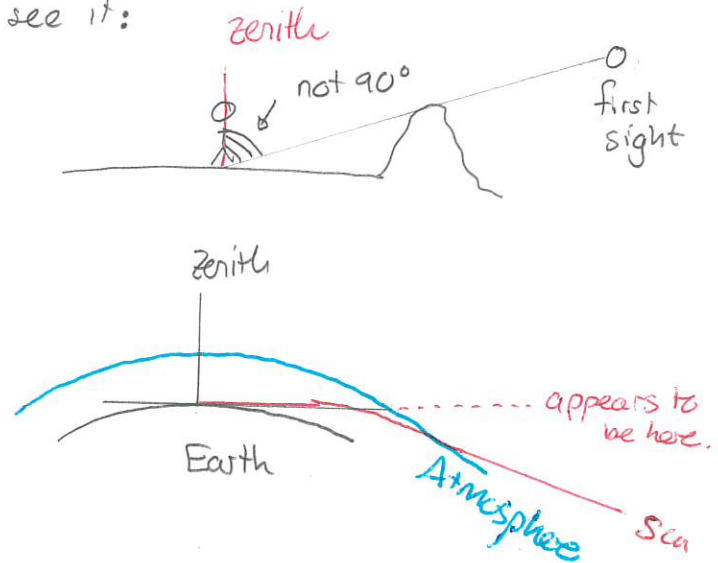 see it:
zenith
not 90°
first
sight
Zenith
appears to
be here.
Earth
Atmosphere
Sun